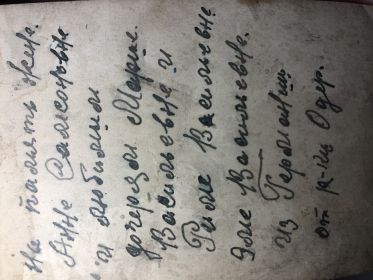 На память жене.
Анне Самсоновне
и любимым
дочерям Марие.
Васильевне и
Римме Васильевне
Эмме Васильевне.
из Германии
от р-ки Одер.